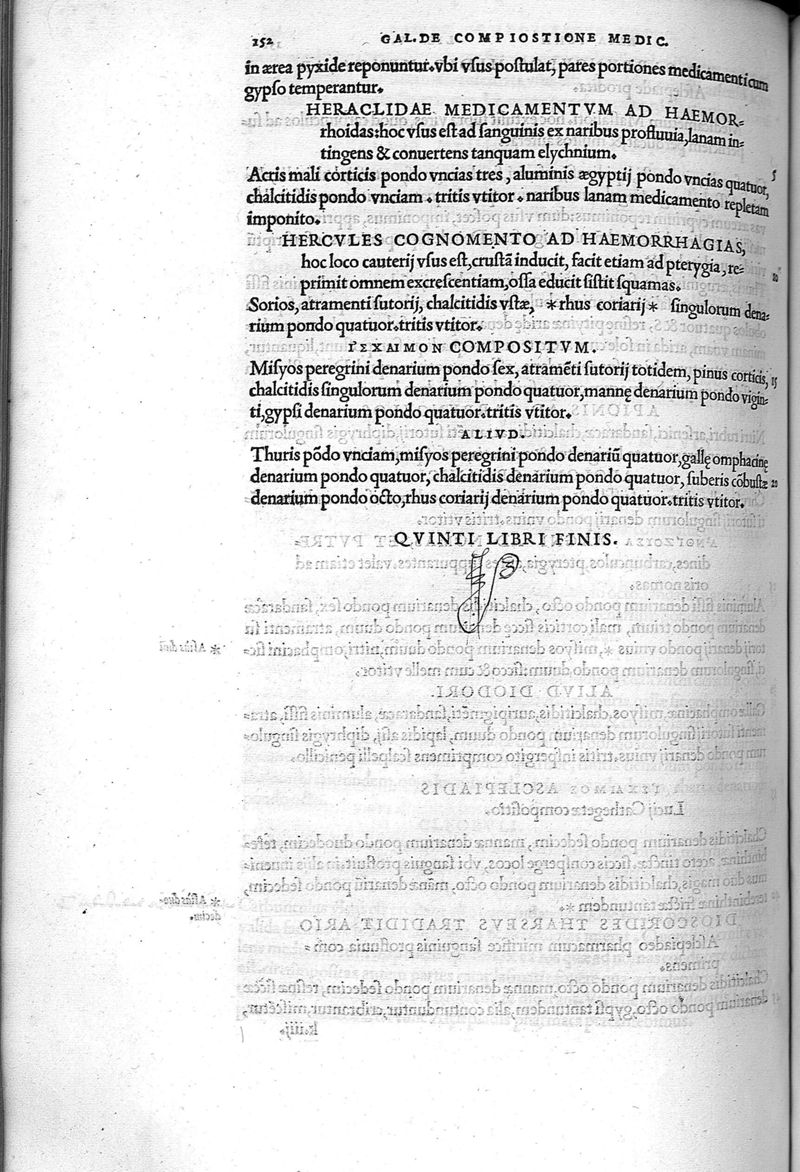 152 GAL.DE COMPIOSTIONE MEDIC.
in ærea pyxide reponuntur.vbi vſus poſtulat, pares portiones medicamenti cum
gypſo temperantur.
HERACLIDAE MEDICAMENTVM AD HAEMOR-
rhoidas:hoc vſus eſt ad ſanguinis ex naribus profluuia,lanam in-
tingens & conuertens tanquam elychnium.
Actis mali corticis pondo vncias tres, aluminis ægyptij pondo vncias quatuor, 5
chalcitidis pondo vnciam. tritis vtitor. naribus lanam medicamento repletam
imponito.
HERCVLES COGNOMENTO AD HAEMORRHAGIAS,
hoc loco cauterij vſus eſt,cruſtā inducit, facit etiam ad pterygia, re-
primit omnem excreſcentiam,oſſa educit ſiſtit ſquamas. 10
Sorios, atramenti ſutorij, chalcitidis vſtæ, *rhus coriarij* ſingulorum dena-
rium pondo quatuor.tritis vtitor.
ΙΓΕΧΑΙΜΟΝ COMPOSITVM.
Miſyos peregrini denarium pondo ſex, atramēti ſutorij totidem, pinus corticis, 15
chalcitidis ſingulorum denarium pondo quatuor, mannę denarium pondo vigin-
ti,gypſi denarium pondo quatuor.tritis vtitor.
ALIVD.
Thuris pōdo vnciam,miſyos peregrini pondo denariū quatuor,gallę omphacinę
denarium pondo quatuor, chalcitidis denarium pondo quatuor, ſuberis cōbuſtæ 20
denarium pondo octo,rhus coriarij denarium pondo quatuor.tritis vtitor.
QVINTI LIBRI FINIS.